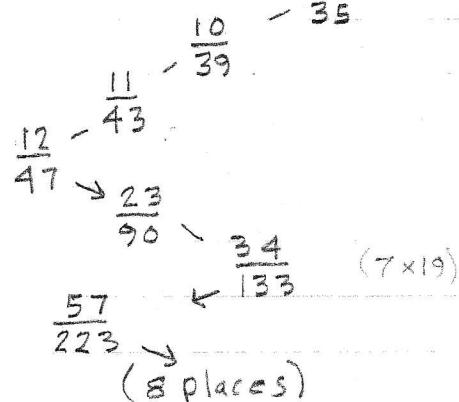 35
10/39
11/43
12/47
23/90
34/133 (7×19)
57/223
(8 places)